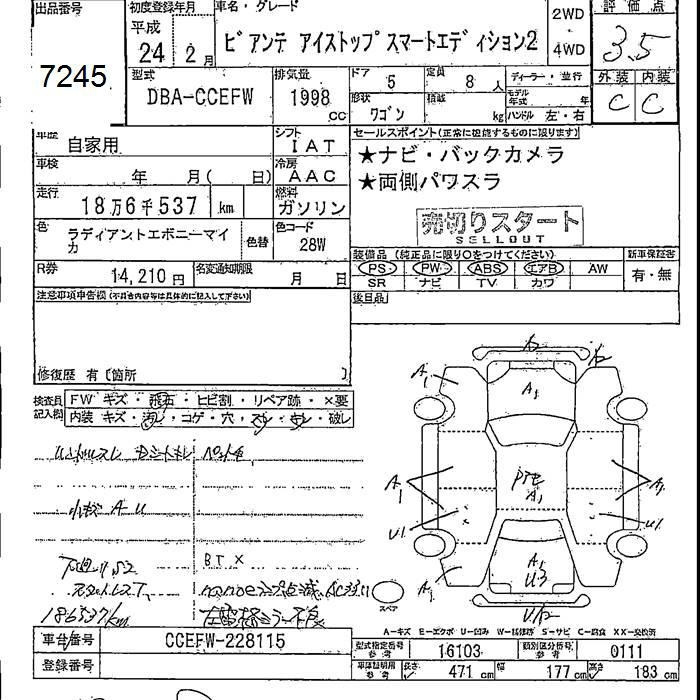 出品番号
7245
初度登録年月
平成
24 2月
車名・グレード
ビアンテ アイストップスマートエディション2
2WD
4WD
評価点
3.5
型式
DBA-CCEFW
排気量
1998 cc
ドア 5
定員 8人
形状 ワゴン
積載 kg
ディーラー・並行
モデル年式 年
ハンドル 左・右
外装 内装
C C
車歴
自家用
シフト
IAT
車検
年 月( 日)
冷房
AAC
走行
18万6千537 km
燃料
ガソリン
色
ラディアントエボニーマイカ
色替
色コード
28W
R券
14,210 円
名変通知期限
月 日
セールスポイント(正常に機能するものに限ります)
★ナビ・バックカメラ
★両側パワスラ
売切りスタート
SELLOUT
装備品(純正品に限り○をつけてください)
PS PW ABS エアB AW
SR ナビ TV カワ
新車保証書
有・無
後日品
注意事項申告欄(不具合内容等は具体的に記入して下さい)
修復歴 有〔箇所 〕
検査員記入欄
FW キズ・飛石・ヒビ割・リペア跡・×要
内装 キズ・汚レ・コゲ・穴・スレ・キレ・破レ
小キズ A U
下廻り サビ
スタットレスT
BT X
186537km
車台番号
CCEFW-228115
登録番号
A1
A1
A1
A1
A1
A1
U1
U1
U3
スペア
A-キズ E-エクボ U-凹み W-補修跡 S-サビ C-腐食 XX-交換済
型式指定番号 参考
16103
類別区分番号 参考
0111
車検証明用 参考
長さ 471 cm
幅 177 cm
高さ 183 cm